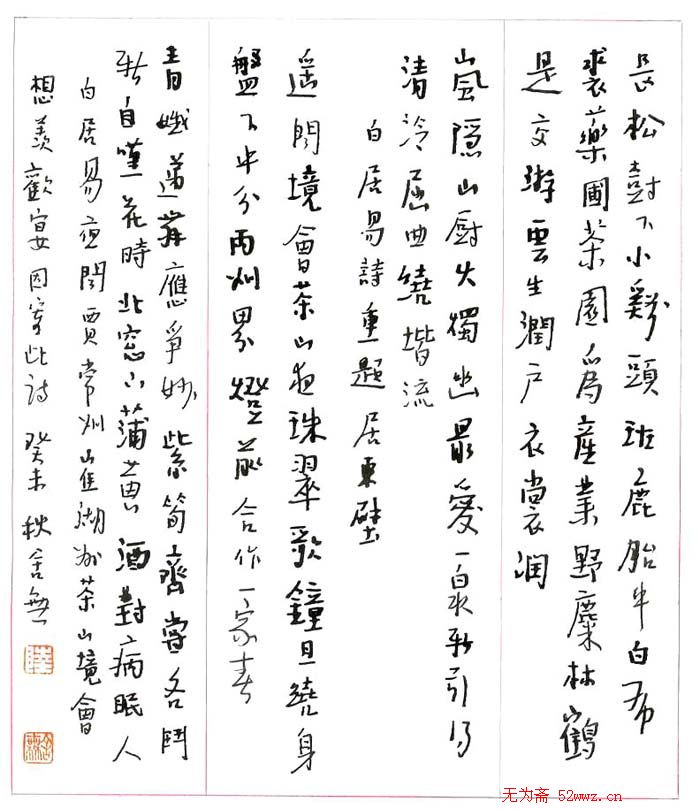 長松樹下小谿頭班鹿胎巾白布
裘藥圃茶園為產業野麋林鶴
是交遊雲生澗戶衣裳潤
嵐隱山廚火燭幽最愛一泉新引得
清冷屈曲繞堦流
白居易詩重題居東壁
遥聞境會茶山夜珠翠歌鐘旦繞身
盤下中分兩州界燈前合作一家春
青娥遞舞應爭妙紫筍齊嘗各鬥
新自嘆花時北窓下蒲黃酒對病眠人
白居易夜聞賈常州崔湖州茶山境會
想羨歡宴因寄此詩 癸未秋舍無
无为斋 52wwz.cn